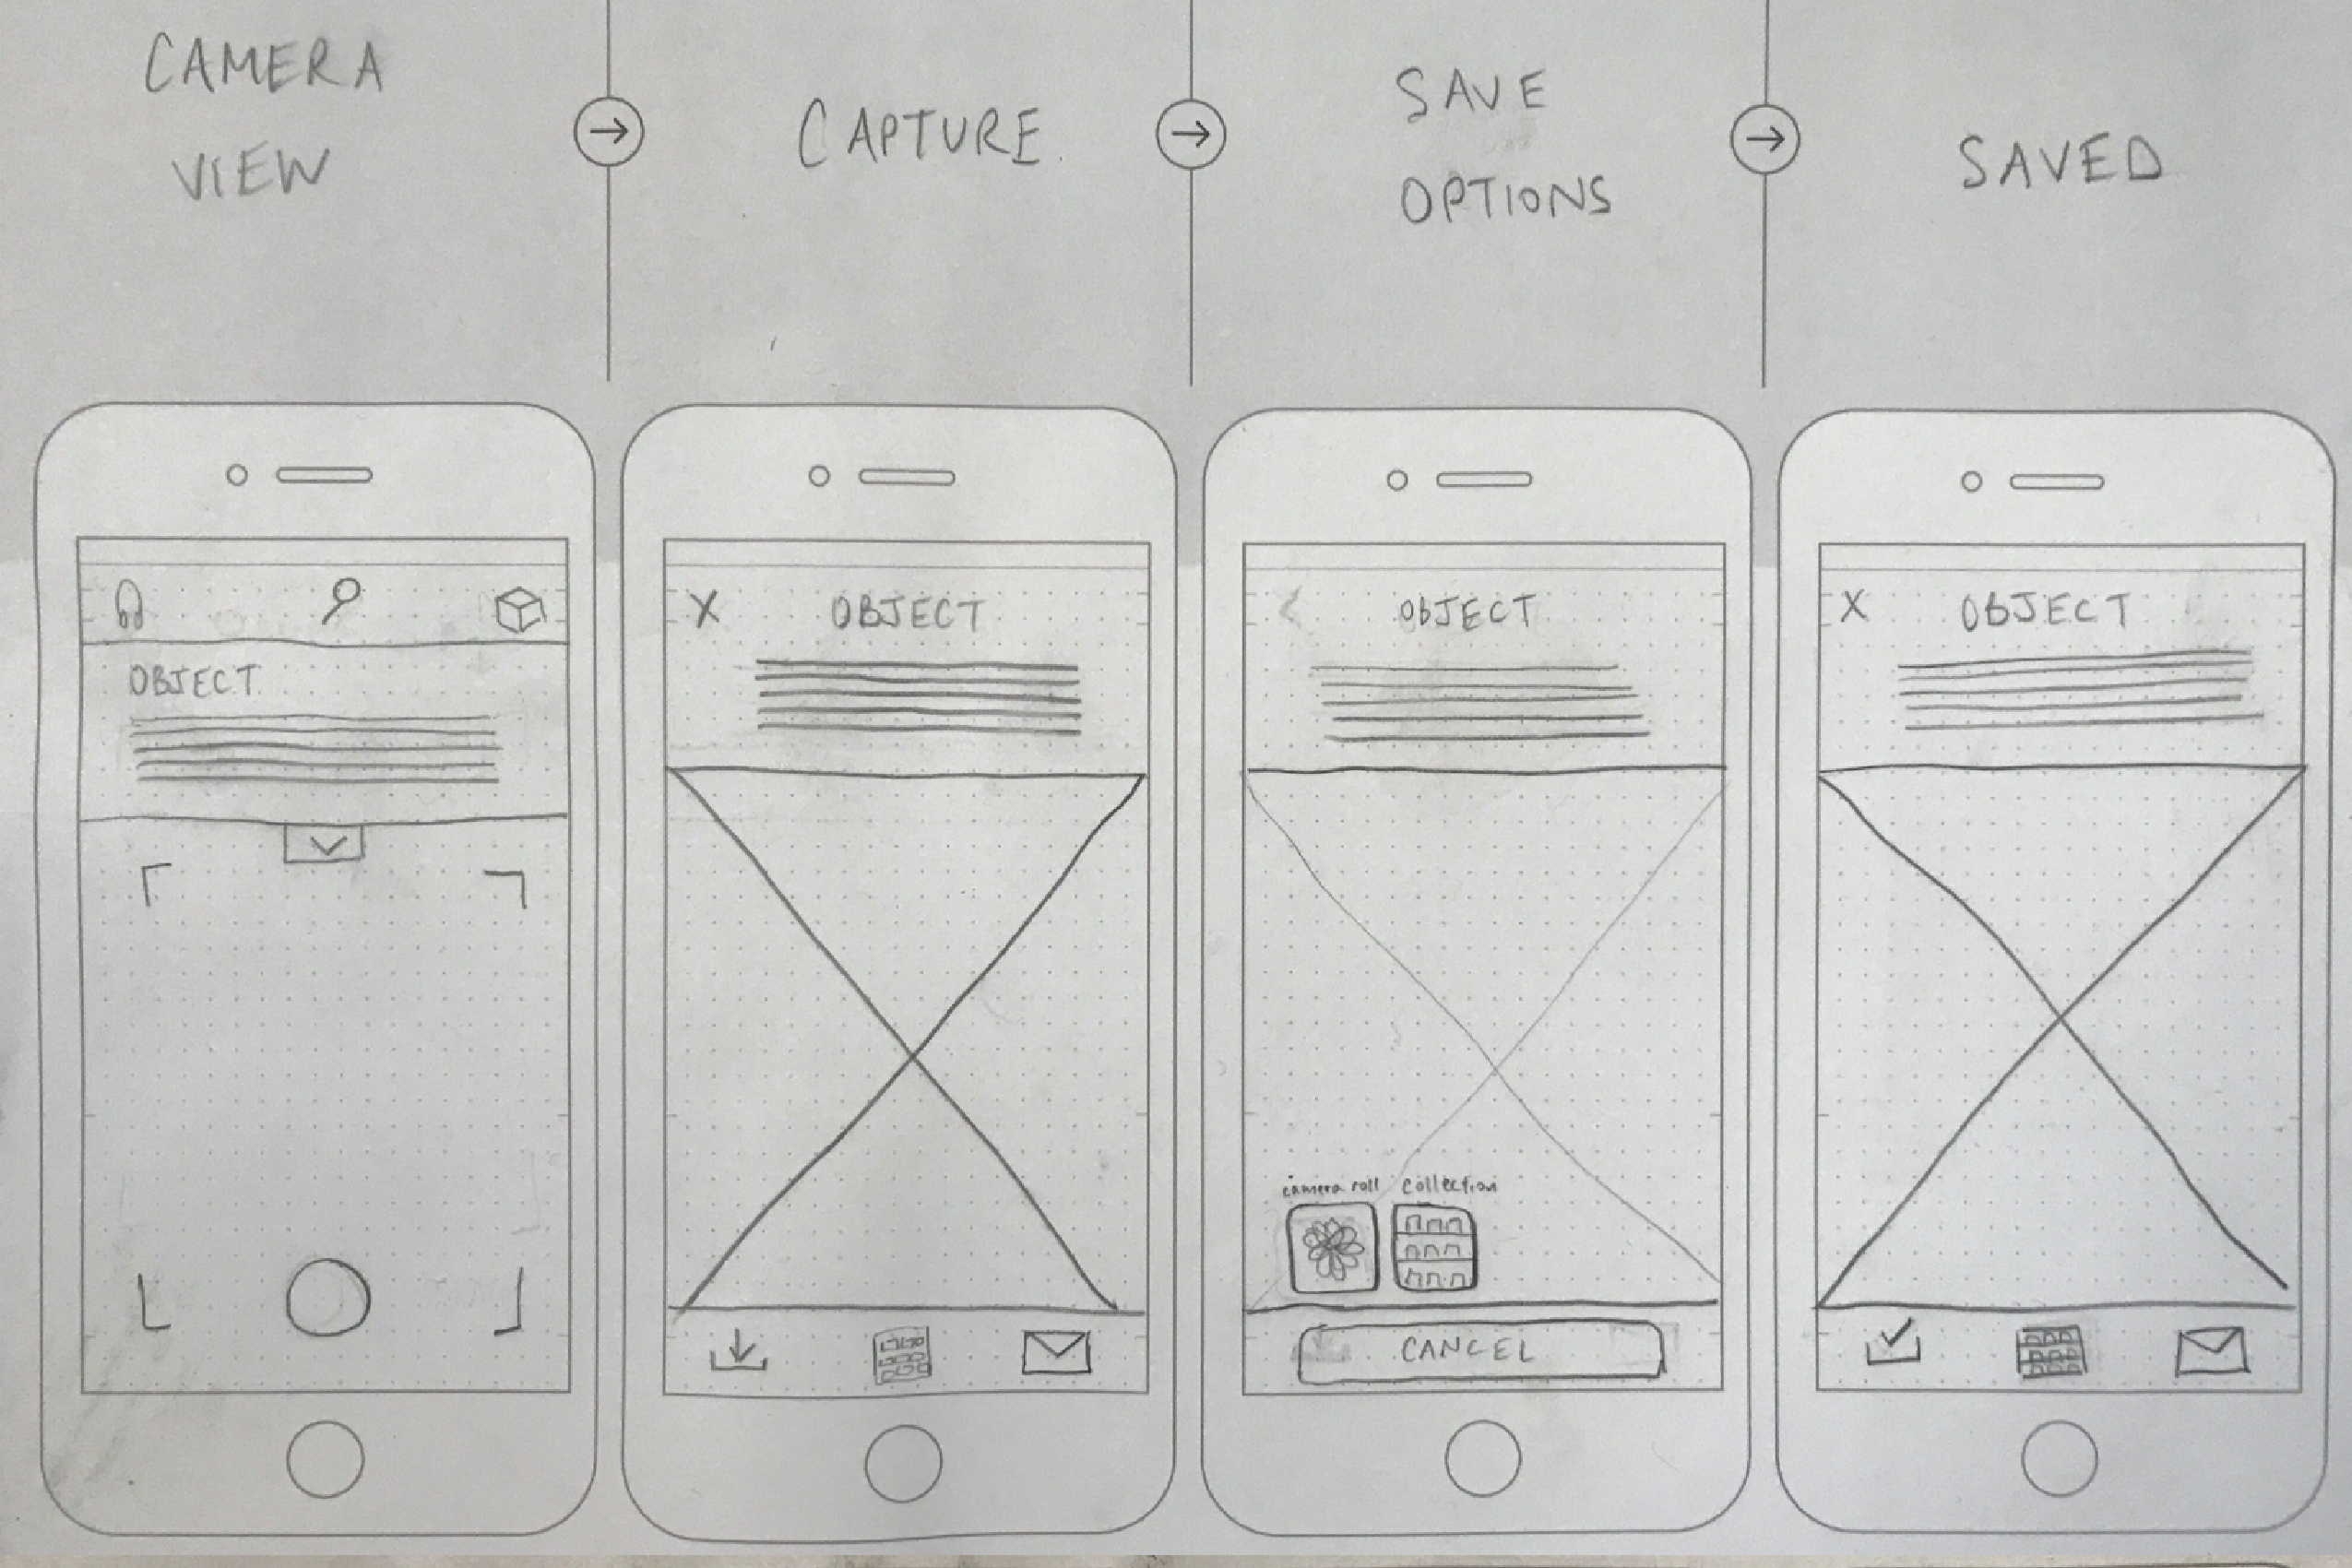 CAMERA
VIEW
CAPTURE
SAVE
OPTIONS
SAVED
OBJECT
X OBJECT
< OBJECT
camera roll collection
CANCEL
X OBJECT